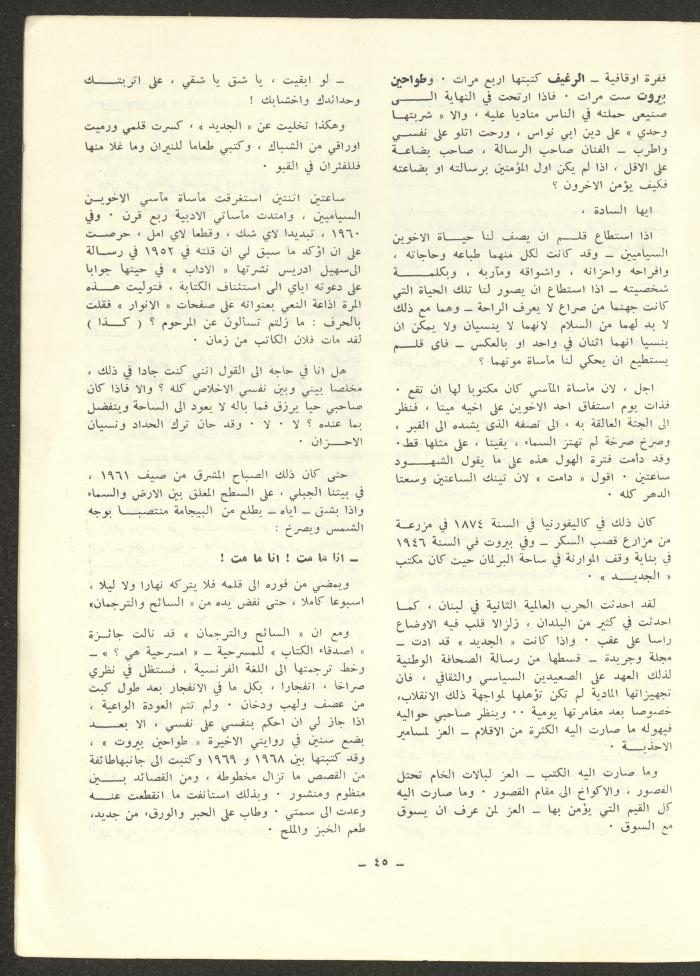 فقرة اوقافية ــ الرغيف كتبتها اربع مرات ٠ وطواحين
بيروت ست مرات ٠ فاذا ارتحت في النهاية الــى
صنيعى حملته في الناس مناديا عليه ، والا « شربتها
وحدي » على دين ابي نواس ، ورحت اتلو على نفســي
واطرب ــ الفنان صاحب الرسالة ، صاحب بضاعــة
على الاقل ، اذا لم يكن اول المؤمنين برسالته او بضاعته
فكيف يؤمن الاخرون ؟
ايها السادة ،
اذا استطاع قلــم ان يصف لنا حيــاة الاخوين
السياميين ــ وقد كانت لكل منهما طباعه وحاجاته ،
وافراحه واحزانه ، واشواقه ومآربه ، وبكلمــــة
شخصيته ــ اذا استطاع ان يصور لنا تلك الحياة التي
كانت جهنما من صراع لا يعرف الراحة ــ وهما مع ذلك
لا بد لهما من السلام لانهما لا ينسيان ولا يمكن ان
ينسيا انهما اثنان في واحد او بالعكس ــ فاى قلــم
يستطيع ان يحكي لنا مأساة موتهما ؟
اجل ، لان مأساة المآسي كان مكتوبا لها ان تقع ٠
فذات يوم استفاق احد الاخوين على اخيه ميتا ، فنظر
الى الجثة العالقة به ، الى نصفه الذى يشده الى القبر ،
وصرخ صرخة لم تهتز السماء ، يقينا ، على مثلها قط ٠
وقد دامت فترة الهول هذه على ما يقول الشهــود
ساعتين ٠ اقول « دامت » لان تينك الساعتين وسعتا
الدهر كله ٠
كان ذلك في كاليفورنيا في السنة ١٨٧٤ في مزرعــة
من مزارع قصب السكر ــ وفي بيروت في السنة ١٩٤٦
في بناية وقف الموارنة في ساحة البرلمان حيث كان مكتب
« الجديــد » ٠
لقد احدثت الحرب العالمية الثانية في لبنان ، كمــا
احدثت في كثير من البلدان ، زلزالا قلب فيه الاوضاع
راسا على عقب ٠ واذا كانت « الجديد » قد ادت ــ
مجلة وجريدة ــ قسطها من رسالة الصحافة الوطنية
لذلك العهد على الصعيدين السياسي والثقافي ، فان
تجهيزاتها المادية لم تكن تؤهلها لمواجهة ذلك الانقلاب،
خصوصا بعد مغامرتها يومية ٠٠ وينظر صاحبي حواليه
فيهوله ما صارت اليه الكثرة من الاقلام ــ العز لمسامير
الاحذيــة ٠
وما صارت اليه الكتب ــ العز لبالات الخام تحتل
القصور ، والاكواخ الى مقام القصور ٠ وما صارت اليه
كل القيم التي يؤمن بها ــ العز لمن عرف ان يسوق
مع السوق ٠
ــ لو ابقيت ، يا شق يا شقي ، على اتربتــــك
وحدائدك واخشابك !
وهكذا تخليت عن « الجديد » ، كسرت قلمي ورميت
اوراقي من الشباك ، وكتبي طعاما للنيران وما غلا منها
فللفئران في القبو ٠
ساعتين اثنتين استغرقت مأساة مآسي الاخويــن
السياميين ، وامتدت مأساتي الادبية ربع قرن ٠ وفي
١٩٦٠ ، تبديدا لاي شك ، وقطعا لاي امل ، حرصــت
على ان اؤكد ما سبق لي ان قلته في ١٩٥٢ في رســالة
الى سهيل ادريس نشرتها « الاداب » في حينها جوابا
على دعوته اياى الى استئناف الكتابة ، فتوليت هــذه
المرة اذاعة النعي بعنوانه على صفحات « الانوار » فقلت
بالحرف : ما زلتم تسألون عن المرحوم ؟ ( كــذا )
لقد مات فلان الكاتب من زمان ٠
هل انا في حاجه الى القول انني كنت جادا في ذلك ،
مخلصا بيني وبين نفسي الاخلاص كله ؟ والا فاذا كان
صاحبي حيا يرزق فما باله لا يعود الى الساحة ويتفضل
بما عنده ؟ لا ٠ لا ٠ وقد حان ترك الحداد ونسيان
الاحــزان ٠
حتى كان ذلك الصباح المشرق من صيف ١٩٦١ ،
في بيتنا الجبلي ، على السطح المعلق بين الارض والسماء
واذا بشق ــ اياه ــ يطلع من البيجامة منتصبــا بوجه
الشمس ويصرخ :
ــ انا ما مت ! انا ما مت !
ويمضي من فوره الى قلمه فلا يتركه نهارا ولا ليلا ،
اسبوعا كاملا ، حتى نفض يده من « السائح والترجمان»
ومع ان « السائح والترجمان » قد نالت جائــزة
« اصدقاء الكتاب » للمسرحية ــ « امسرحية هي ؟ » ــ
وخط ترجمتها الى اللغة الفرنسية ، فستظل في نظري
صراخا ، انفجارا ، بكل ما في الانفجار بعد طول كبت
من عصف ولهب ودخان ٠ ولم تتم العودة الواعية ،
اذا جاز لي ان احكم بنفسي على نفسي ، الا بعــد
بضع سنين في روايتي الاخيرة « طواحين بيروت » ،
وقد كتبتها بين ١٩٦٨ و ١٩٦٩ وكتبت الى جانبها طائفة
من القصص ما تزال مخطوطة ، ومن القصائد بــين
منظوم ومنشور ٠ وبذلك استأنفت ما انقطعت عنــه
وعدت الى سمتي ٠ وطاب على الحبر والورق، من جديد،
طعم الخبز والملح ٠
ــ ٤٥ ــ